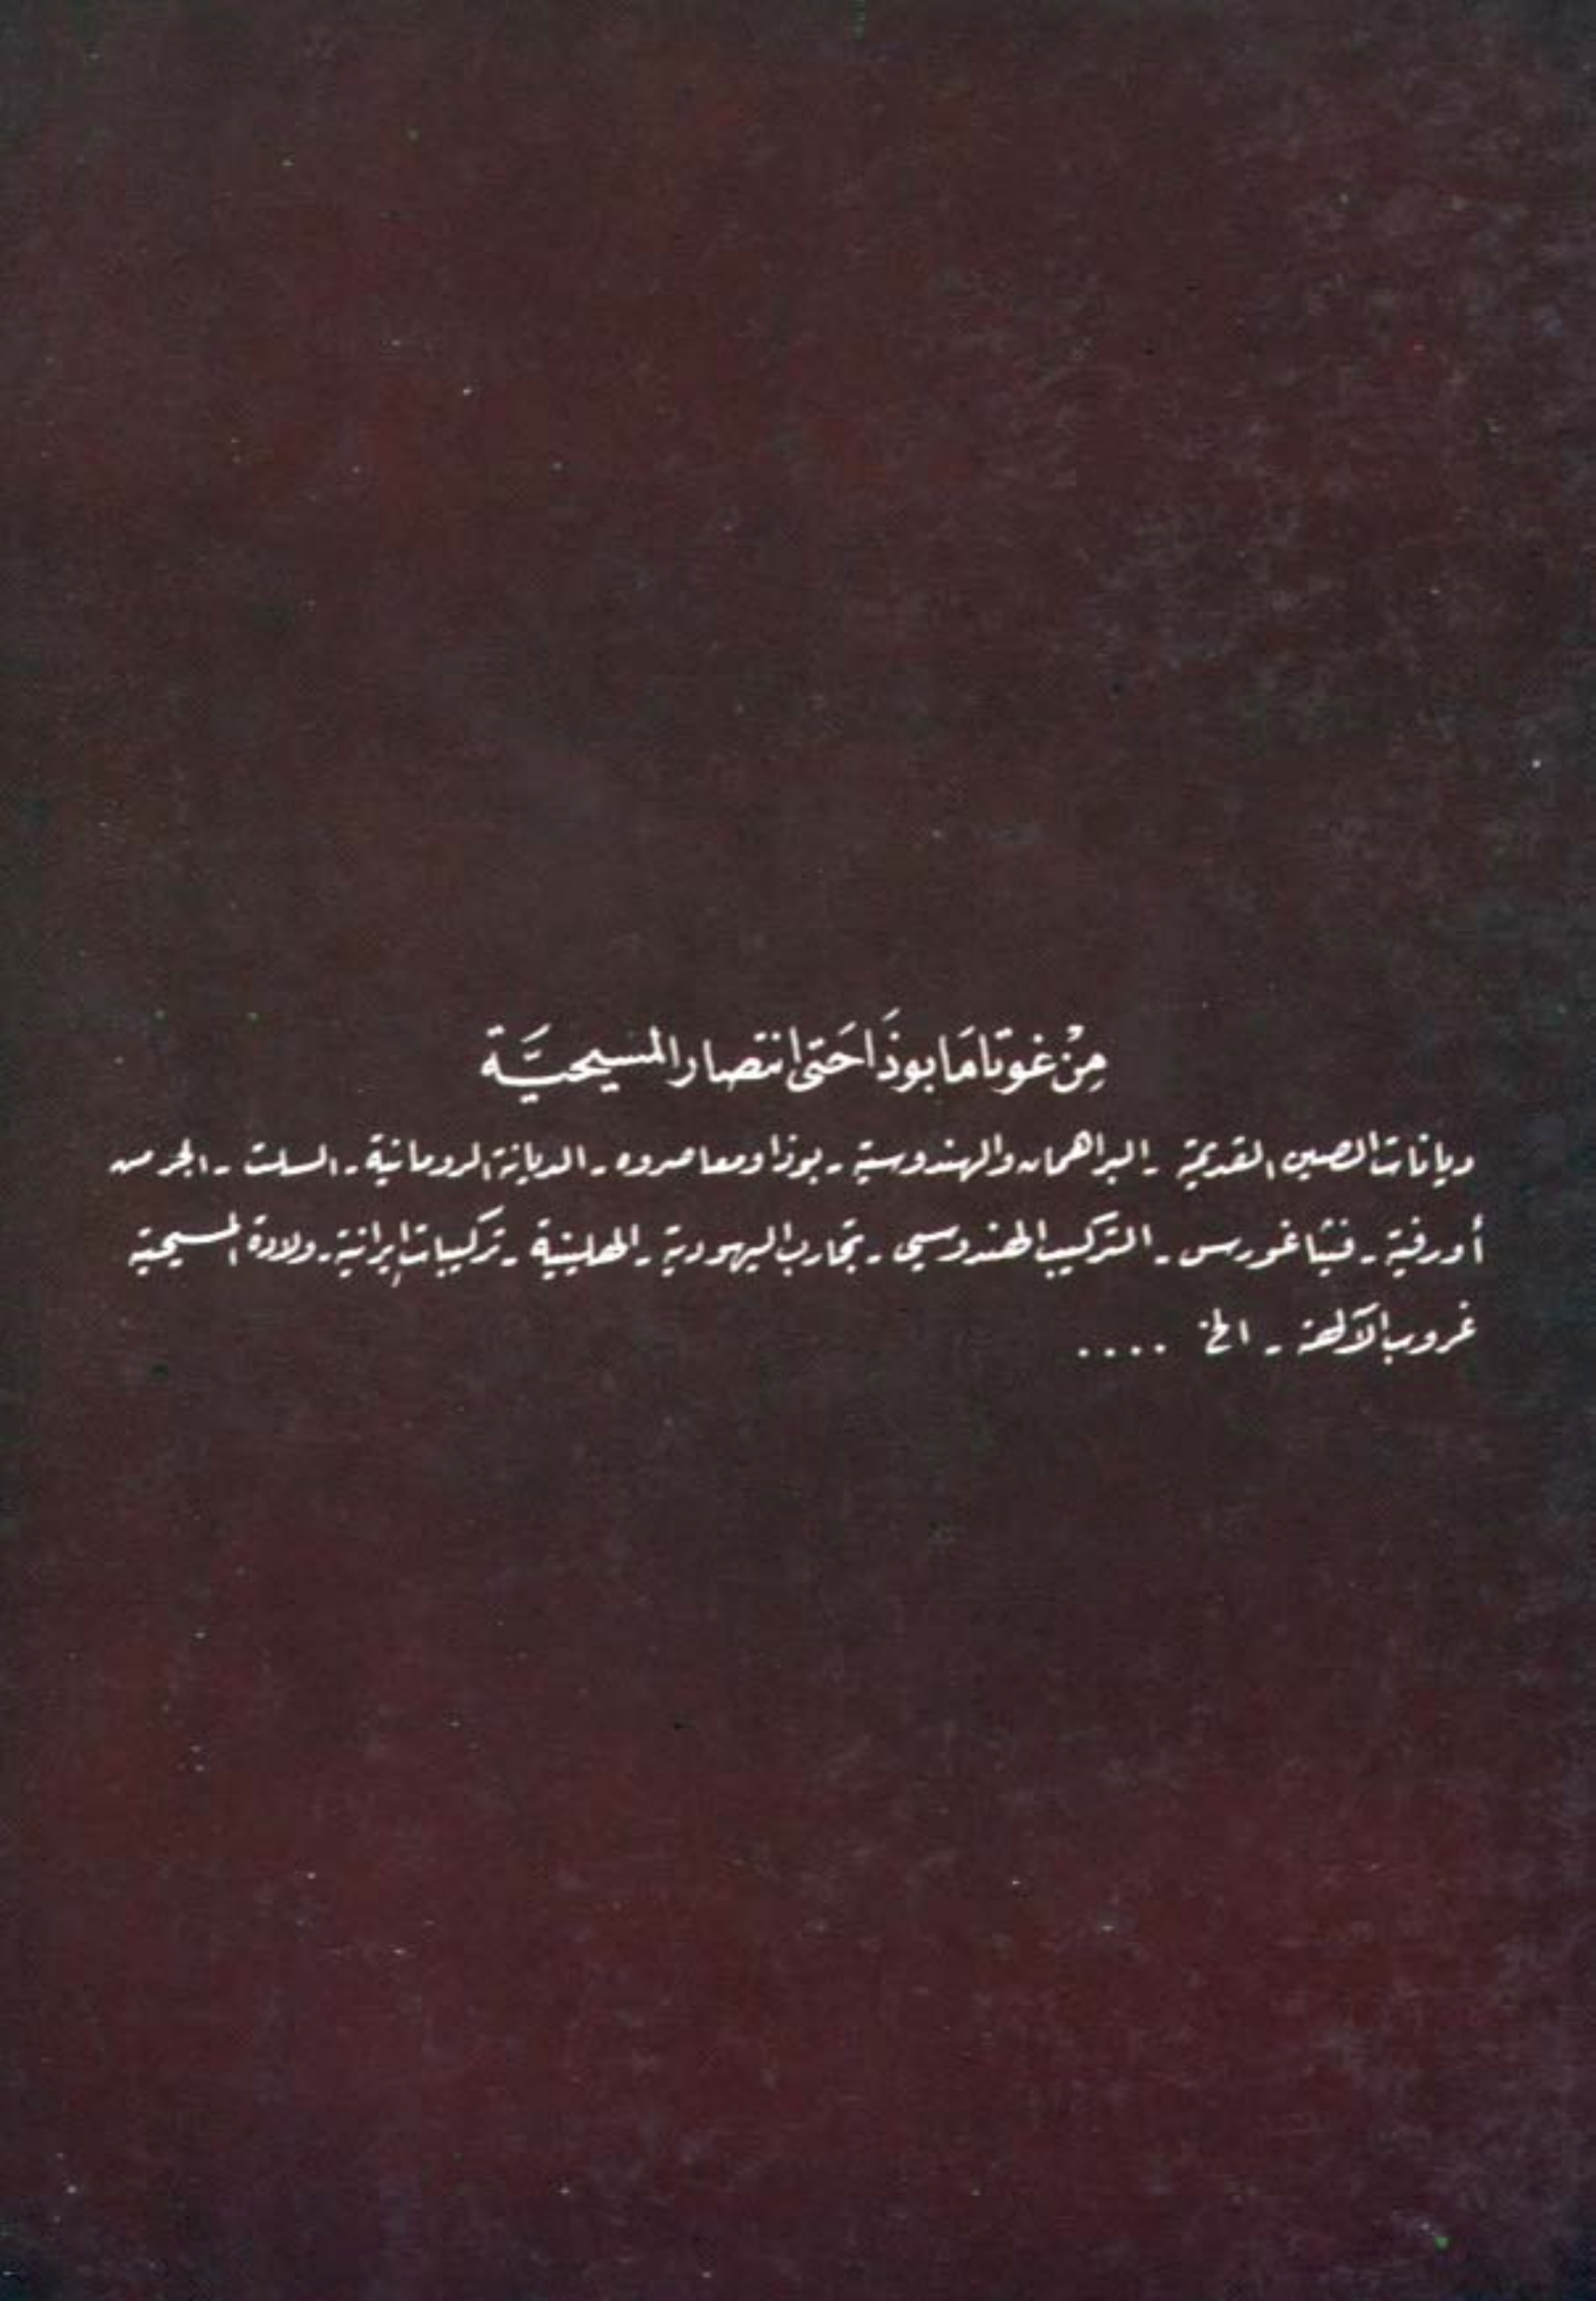 مِنْ غوتامَا بوذَا حَتى انتصار المسيحيَّة
ديانات الصين القديمة - البراهمان والهندوسية - بوذا ومعاصروه - الديانة الرومانية - السلت - الجرمن
أورفية - فيثاغورس - التركيب الهندوسي - تجارب اليهودية - الهلينية - تركيبات إيرانية - ولادة المسيحية
غروب الآلهة - الخ ....